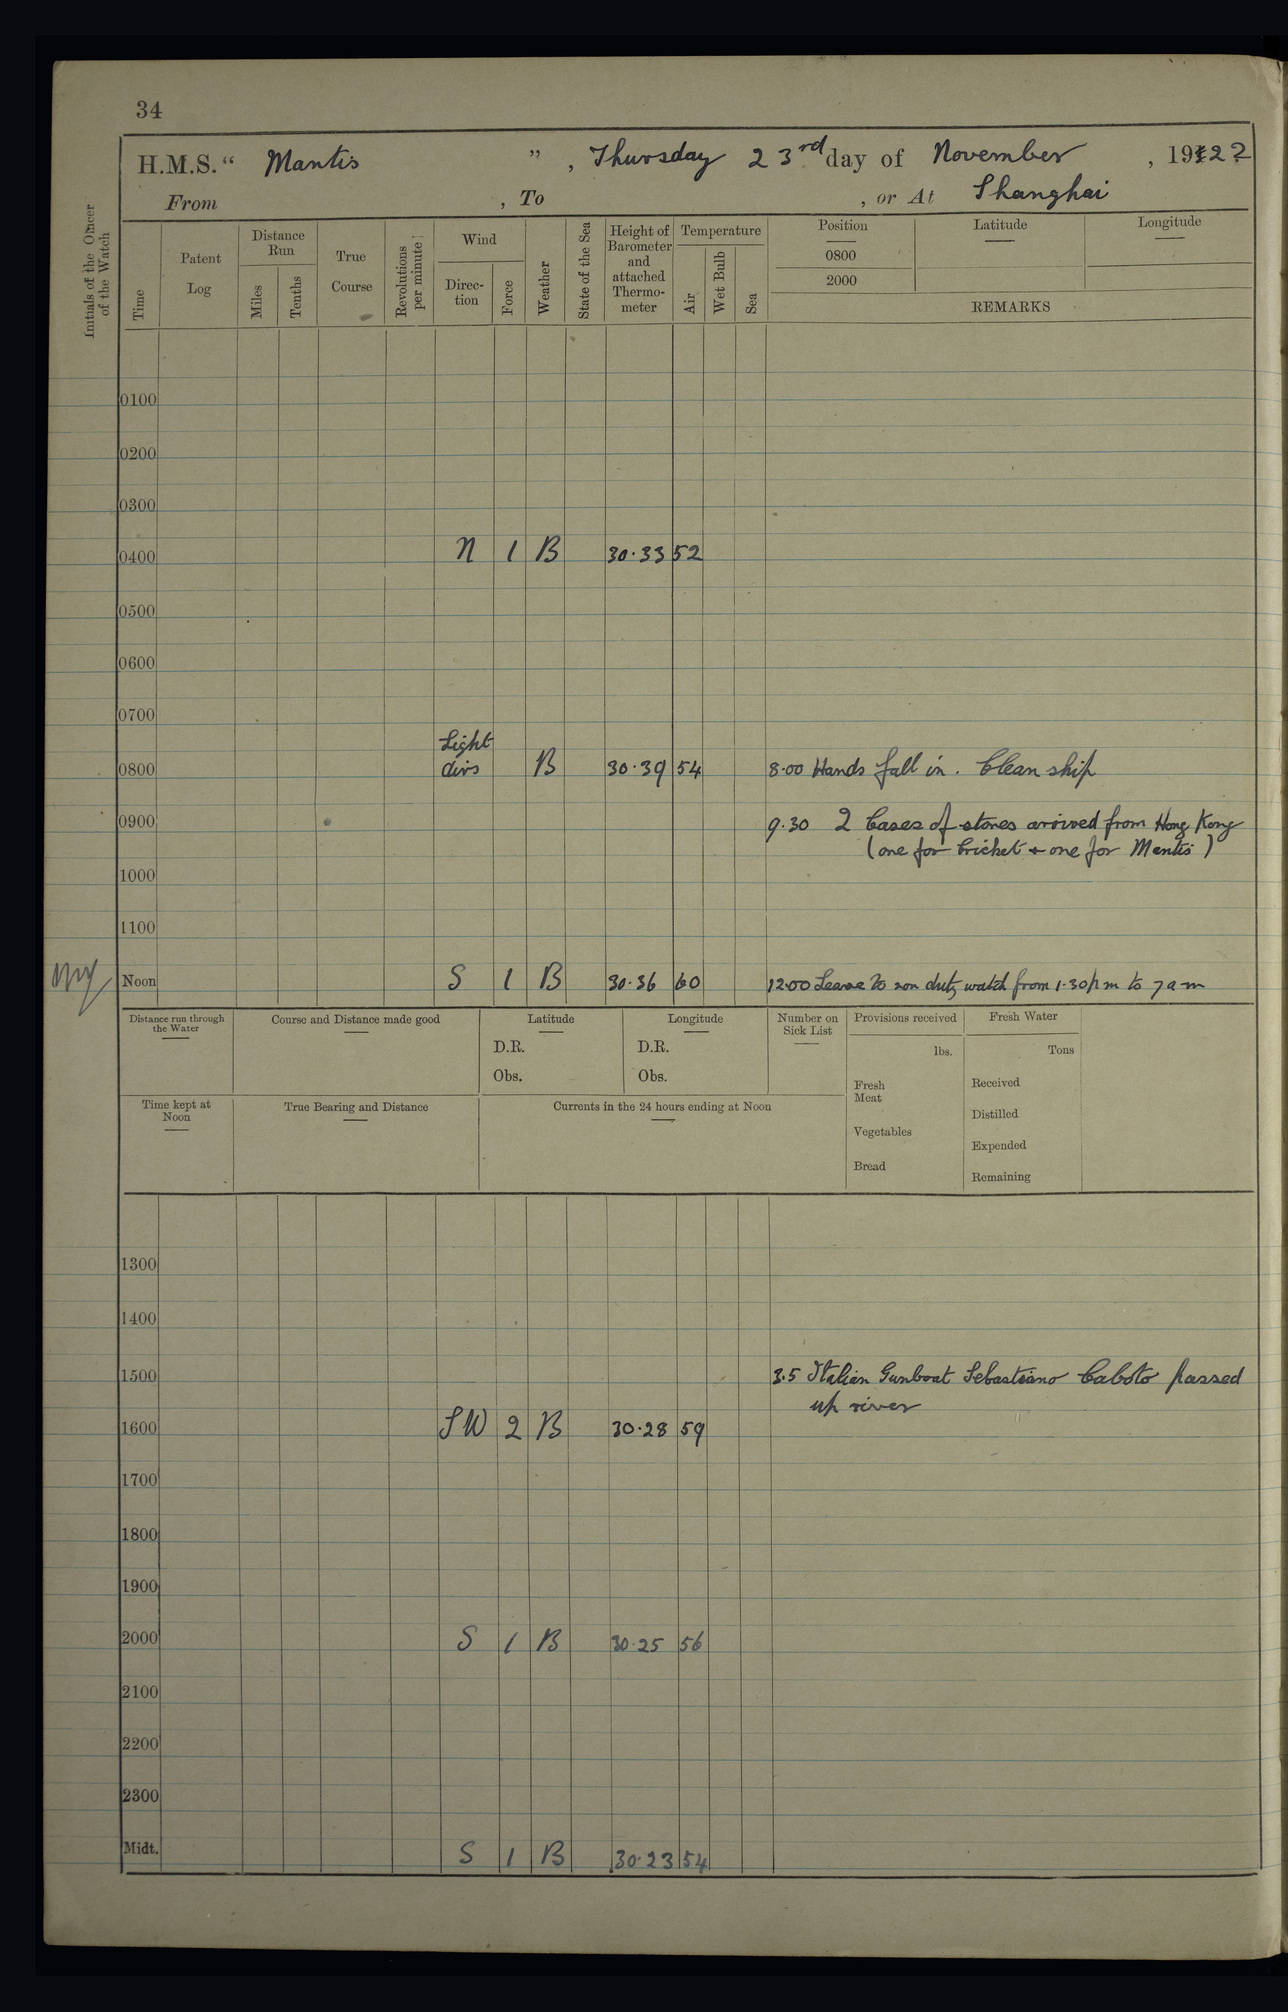 34
H.M.S. “ Mantis ” , Thursday 23rd day of November , 1922
From , To , or At Shanghai
Initials of the Officer of the Watch
Time
Patent Log
Distance Run
Miles
Tenths
True Course
Revolutions per minute
Wind
Direc-tion
Force
Weather
State of the Sea
Height of Barometer and attached Thermo-meter
Temperature
Air
Wet Bulb
Sea
Position
0800
2000
Latitude
Longitude
REMARKS
0100
0200
0300
0400 N 1 B 30.33 52
0500
0600
0700
Light
0800 airs B 30.39 54 8.00 Hands fall in. Clean ship
0900 9.30 2 Cases of stores arrived from Hong Kong
(one for Cricket + one for Mantis)
1000
1100
Noon S 1 B 30.36 60 12.00 Leave to non duty watch from 1.30 pm to 7 am
Distance run through the Water
Course and Distance made good
Latitude
D.R.
Obs.
Longitude
D.R.
Obs.
Number on Sick List
Provisions received
lbs.
Fresh Meat
Vegetables
Bread
Fresh Water
Tons
Received
Distilled
Expended
Remaining
Time kept at Noon
True Bearing and Distance
Currents in the 24 hours ending at Noon
1300
1400
1500 3.5 Italian Gunboat Sebastiano Caboto passed
up river
1600 SW 2 B 30.28 59
1700
1800
1900
2000 S 1 B 30.25 56
2100
2200
2300
Midt. S 1 B 30.23 54